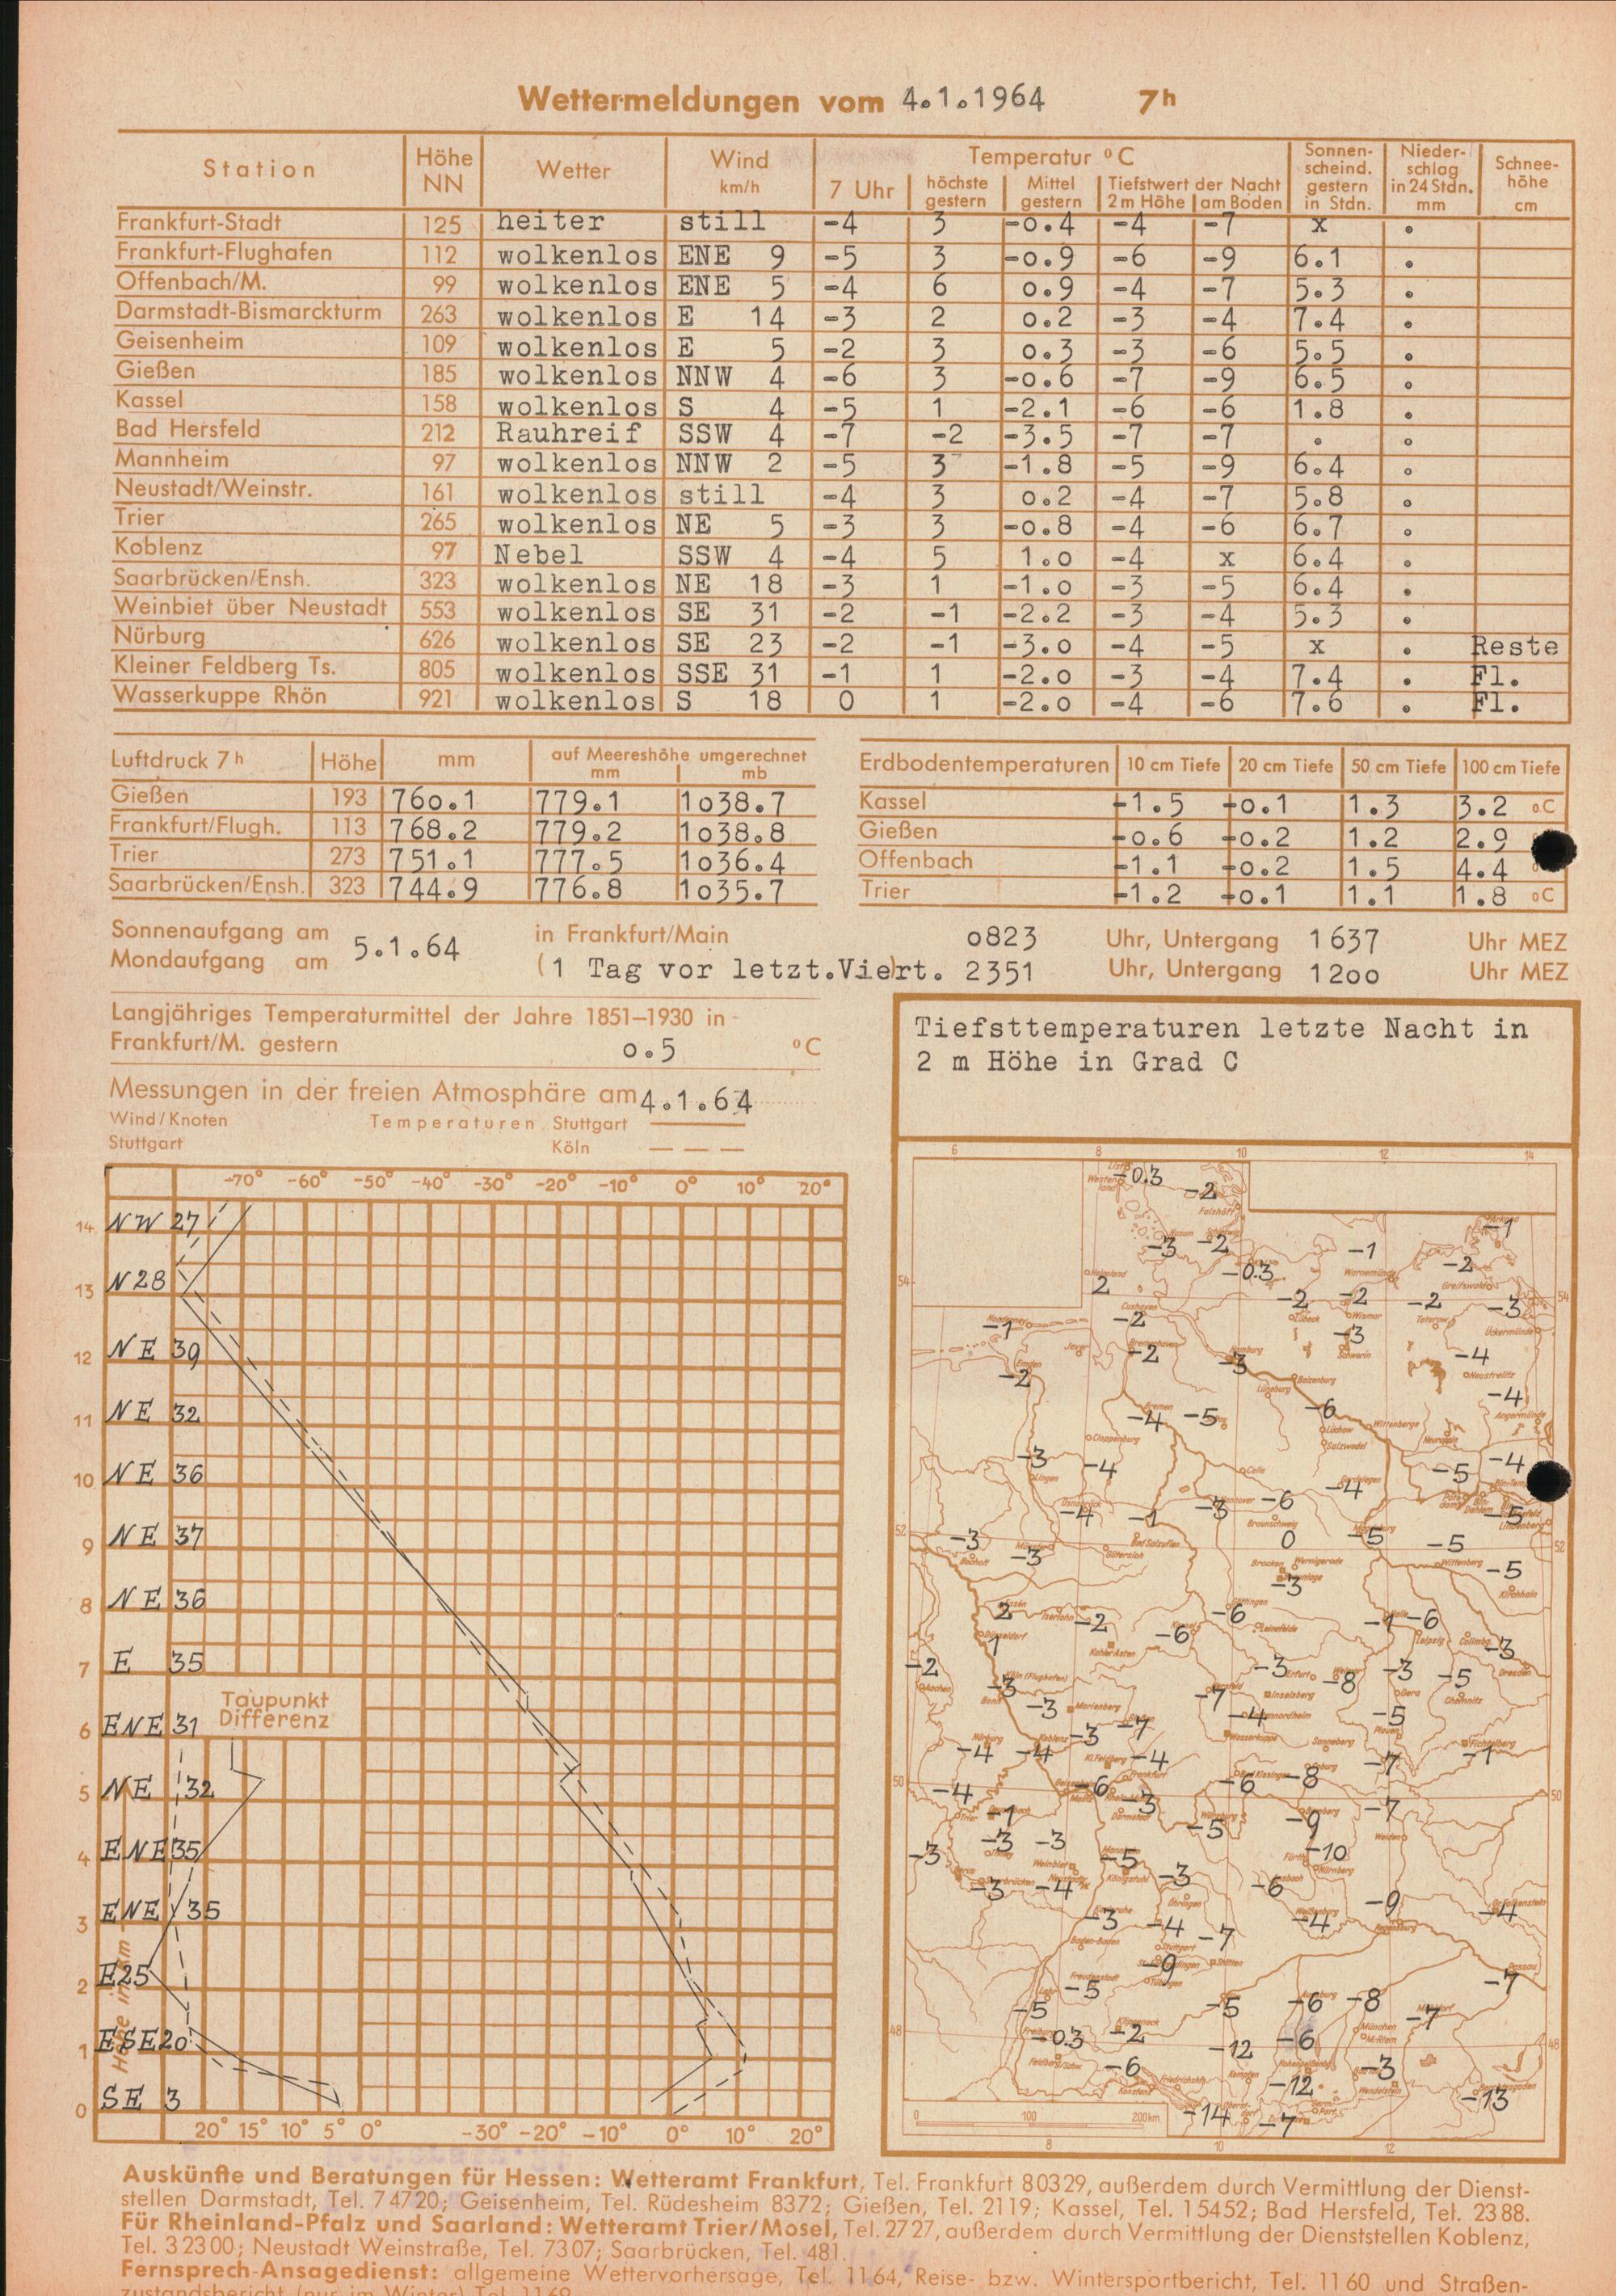 Wettermeldungen vom 4.1.1964 7h
Station Höhe NN Wetter Wind km/h Temperatur °C Sonnenscheind. gestern in Stdn. Niederschlag in 24 Stdn. mm Schneehöhe cm
7 Uhr höchste gestern Mittel gestern Tiefstwert der Nacht 2 m Höhe am Boden
Frankfurt-Stadt 125 heiter still -4 3 -0.4 -4 -7 x .
Frankfurt-Flughafen 112 wolkenlos ENE 9 -5 3 -0.9 -6 -9 6.1 .
Offenbach/M. 99 wolkenlos ENE 5 -4 6 0.9 -4 -7 5.3 .
Darmstadt-Bismarckturm 263 wolkenlos E 14 -3 2 0.2 -3 -4 7.4 .
Geisenheim 109 wolkenlos E 5 -2 3 0.3 -3 -6 5.5 .
Gießen 185 wolkenlos NNW 4 -6 3 -0.6 -7 -9 6.5 .
Kassel 158 wolkenlos S 4 -5 1 -2.1 -6 -6 1.8 .
Bad Hersfeld 212 Rauhreif SSW 4 -7 -2 -3.5 -7 -7 . .
Mannheim 97 wolkenlos NNW 2 -5 3 -1.8 -5 -9 6.4 .
Neustadt/Weinstr. 161 wolkenlos still -4 3 0.2 -4 -7 5.8 .
Trier 265 wolkenlos NE 5 -3 3 -0.8 -4 -6 6.7 .
Koblenz 97 Nebel SSW 4 -4 5 1.0 -4 x 6.4 .
Saarbrücken/Ensh. 323 wolkenlos NE 18 -3 1 -1.0 -3 -5 6.4 .
Weinbiet über Neustadt 553 wolkenlos SE 31 -2 -1 -2.2 -3 -4 5.3 .
Nürburg 626 wolkenlos SE 23 -2 -1 -3.0 -4 -5 x . Reste
Kleiner Feldberg Ts. 805 wolkenlos SSE 31 -1 1 -2.0 -3 -4 7.4 . Fl.
Wasserkuppe Rhön 921 wolkenlos S 18 0 1 -2.0 -4 -6 7.6 . Fl.
Luftdruck 7h Höhe mm auf Meereshöhe umgerechnet mm mb
Gießen 193 760.1 779.1 1038.7
Frankfurt/Flugh. 113 768.2 779.2 1038.8
Trier 273 751.1 777.5 1036.4
Saarbrücken/Ensh. 323 744.9 776.8 1035.7
Erdbodentemperaturen 10 cm Tiefe 20 cm Tiefe 50 cm Tiefe 100 cm Tiefe
Kassel -1.5 +0.1 1.3 3.2 °C
Gießen -0.6 +0.2 1.2 2.9
Offenbach -1.1 +0.2 1.5 4.4
Trier -1.2 +0.1 1.1 1.8 °C
Sonnenaufgang am 5.1.64 in Frankfurt/Main 0823 Uhr, Untergang 1637 Uhr MEZ
Mondaufgang am (1 Tag vor letzt.Viert. 2351 Uhr, Untergang 1200 Uhr MEZ
Langjähriges Temperaturmittel der Jahre 1851–1930 in
Frankfurt/M. gestern 0.5 °C
Messungen in der freien Atmosphäre am 4.1.64
Wind/Knoten Temperaturen Stuttgart
Stuttgart Köln
-70° -60° -50° -40° -30° -20° -10° 0° 10° 20°
14 NW 27
13 N 28
12 NE 39
11 NE 32
10 NE 36
9 NE 37
8 NE 36
7 E 35
Taupunkt
Differenz
6 ENE 31
5 NE 32
4 ENE 35
3 ENE 35
2 E 25
1 ESE 20
0 SE 3
Höhe in km
20° 15° 10° 5° 0° -30° -20° -10° 0° 10° 20°
Tiefsttemperaturen letzte Nacht in
2 m Höhe in Grad C
6 8 10 12 14
-0.3 -2
-3 -2 -1 -1
2 -0.3 -2
-2 -2 -2 -3
-1 -2 -3
-2 -2 -3 -4
-4 -5 -6 -4
-3 -4 -4 -5 -4
-4 -1 -3 -6 -5
-3 -3 0 -5 -5
-3 -5
2 -2 -6 -6 -1 -6
1 -3
-2 -3 -3 -8 -3 -5
-3 -7 -4 -5
-4 -4 -3 -7 -4 -7 -1
-4 -6 -3 -6 -8
-1 -5 -9 -7
-3 -3 -3 -5 -10
-3 -4 -3 -6
-3 -4 -7 -4 -9 -4
-9 -5 -7
-5 -5 -6 -8 -7
-0.3 -2 -12 -6
-6 -12 -3 -13
-14 -7
0 100 200km
8 10 12
Auskünfte und Beratungen für Hessen: Wetteramt Frankfurt, Tel. Frankfurt 80329, außerdem durch Vermittlung der Dienst-
stellen Darmstadt, Tel. 74720; Geisenheim, Tel. Rüdesheim 8372; Gießen, Tel. 2119; Kassel, Tel. 15452; Bad Hersfeld, Tel. 2388.
Für Rheinland-Pfalz und Saarland: Wetteramt Trier/Mosel, Tel. 2727, außerdem durch Vermittlung der Dienststellen Koblenz,
Tel. 32300; Neustadt Weinstraße, Tel. 7307; Saarbrücken, Tel. 481.
Fernsprech-Ansagedienst: allgemeine Wettervorhersage, Tel. 1164, Reise- bzw. Wintersportbericht, Tel. 1160 und Straßen-
zustandsbericht (nur im Winter) Tel. 1169